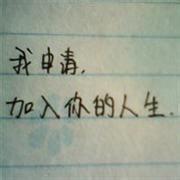 我申请,
加入你的人生.